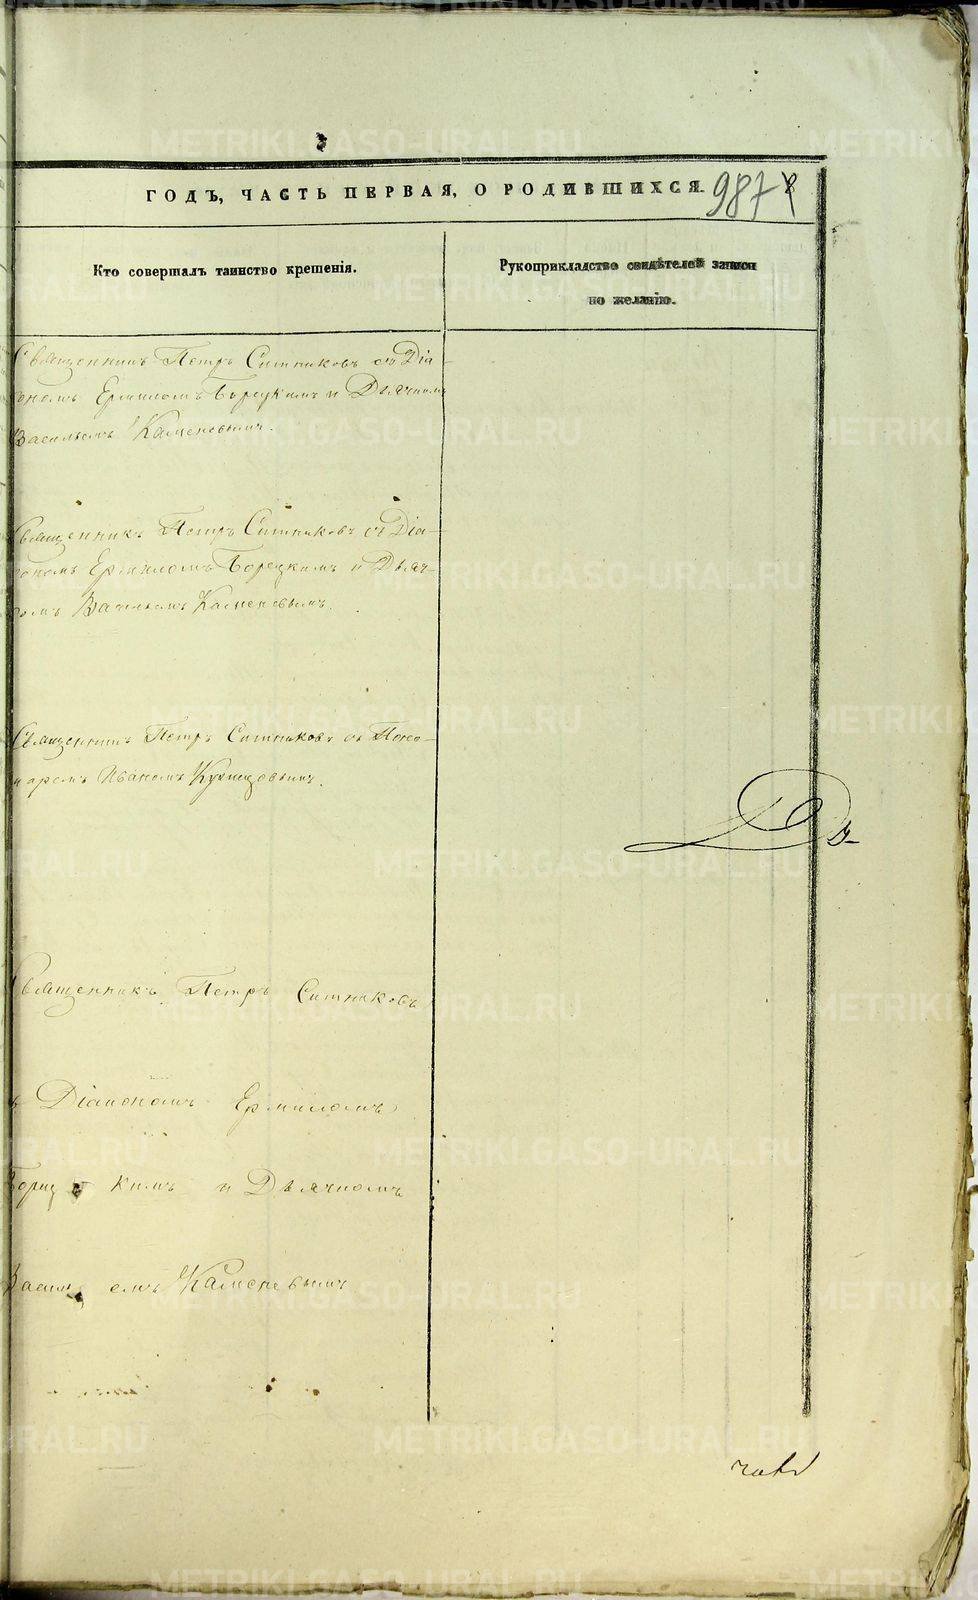 ГОДЪ, ЧАСТЬ ПЕРВАЯ, О РОДИВШИХСЯ.
987
Кто совершалъ таинство крещенія.
Рукоприкладство свидѣтелей записи
по желанію.
Священникъ Петръ Ситниковъ съ Діа-
кономъ Ермиломъ Борецкимъ и Дьячкомъ
Васильемъ Каменевымъ.
Священникъ Петръ Ситниковъ съ Діа-
кономъ Ермиломъ Борецкимъ и Дьяч-
комъ Васильемъ Каменевымъ.
Священникъ Петръ Ситниковъ съ Поно-
маремъ Иваномъ Кузнецовымъ.
Священникъ Петръ Ситниковъ
съ Діакономъ Ермиломъ
Борец кимъ и Дьячкомъ
Василь емъ Каменевымъ
METRIKI.GASO-URAL.RU